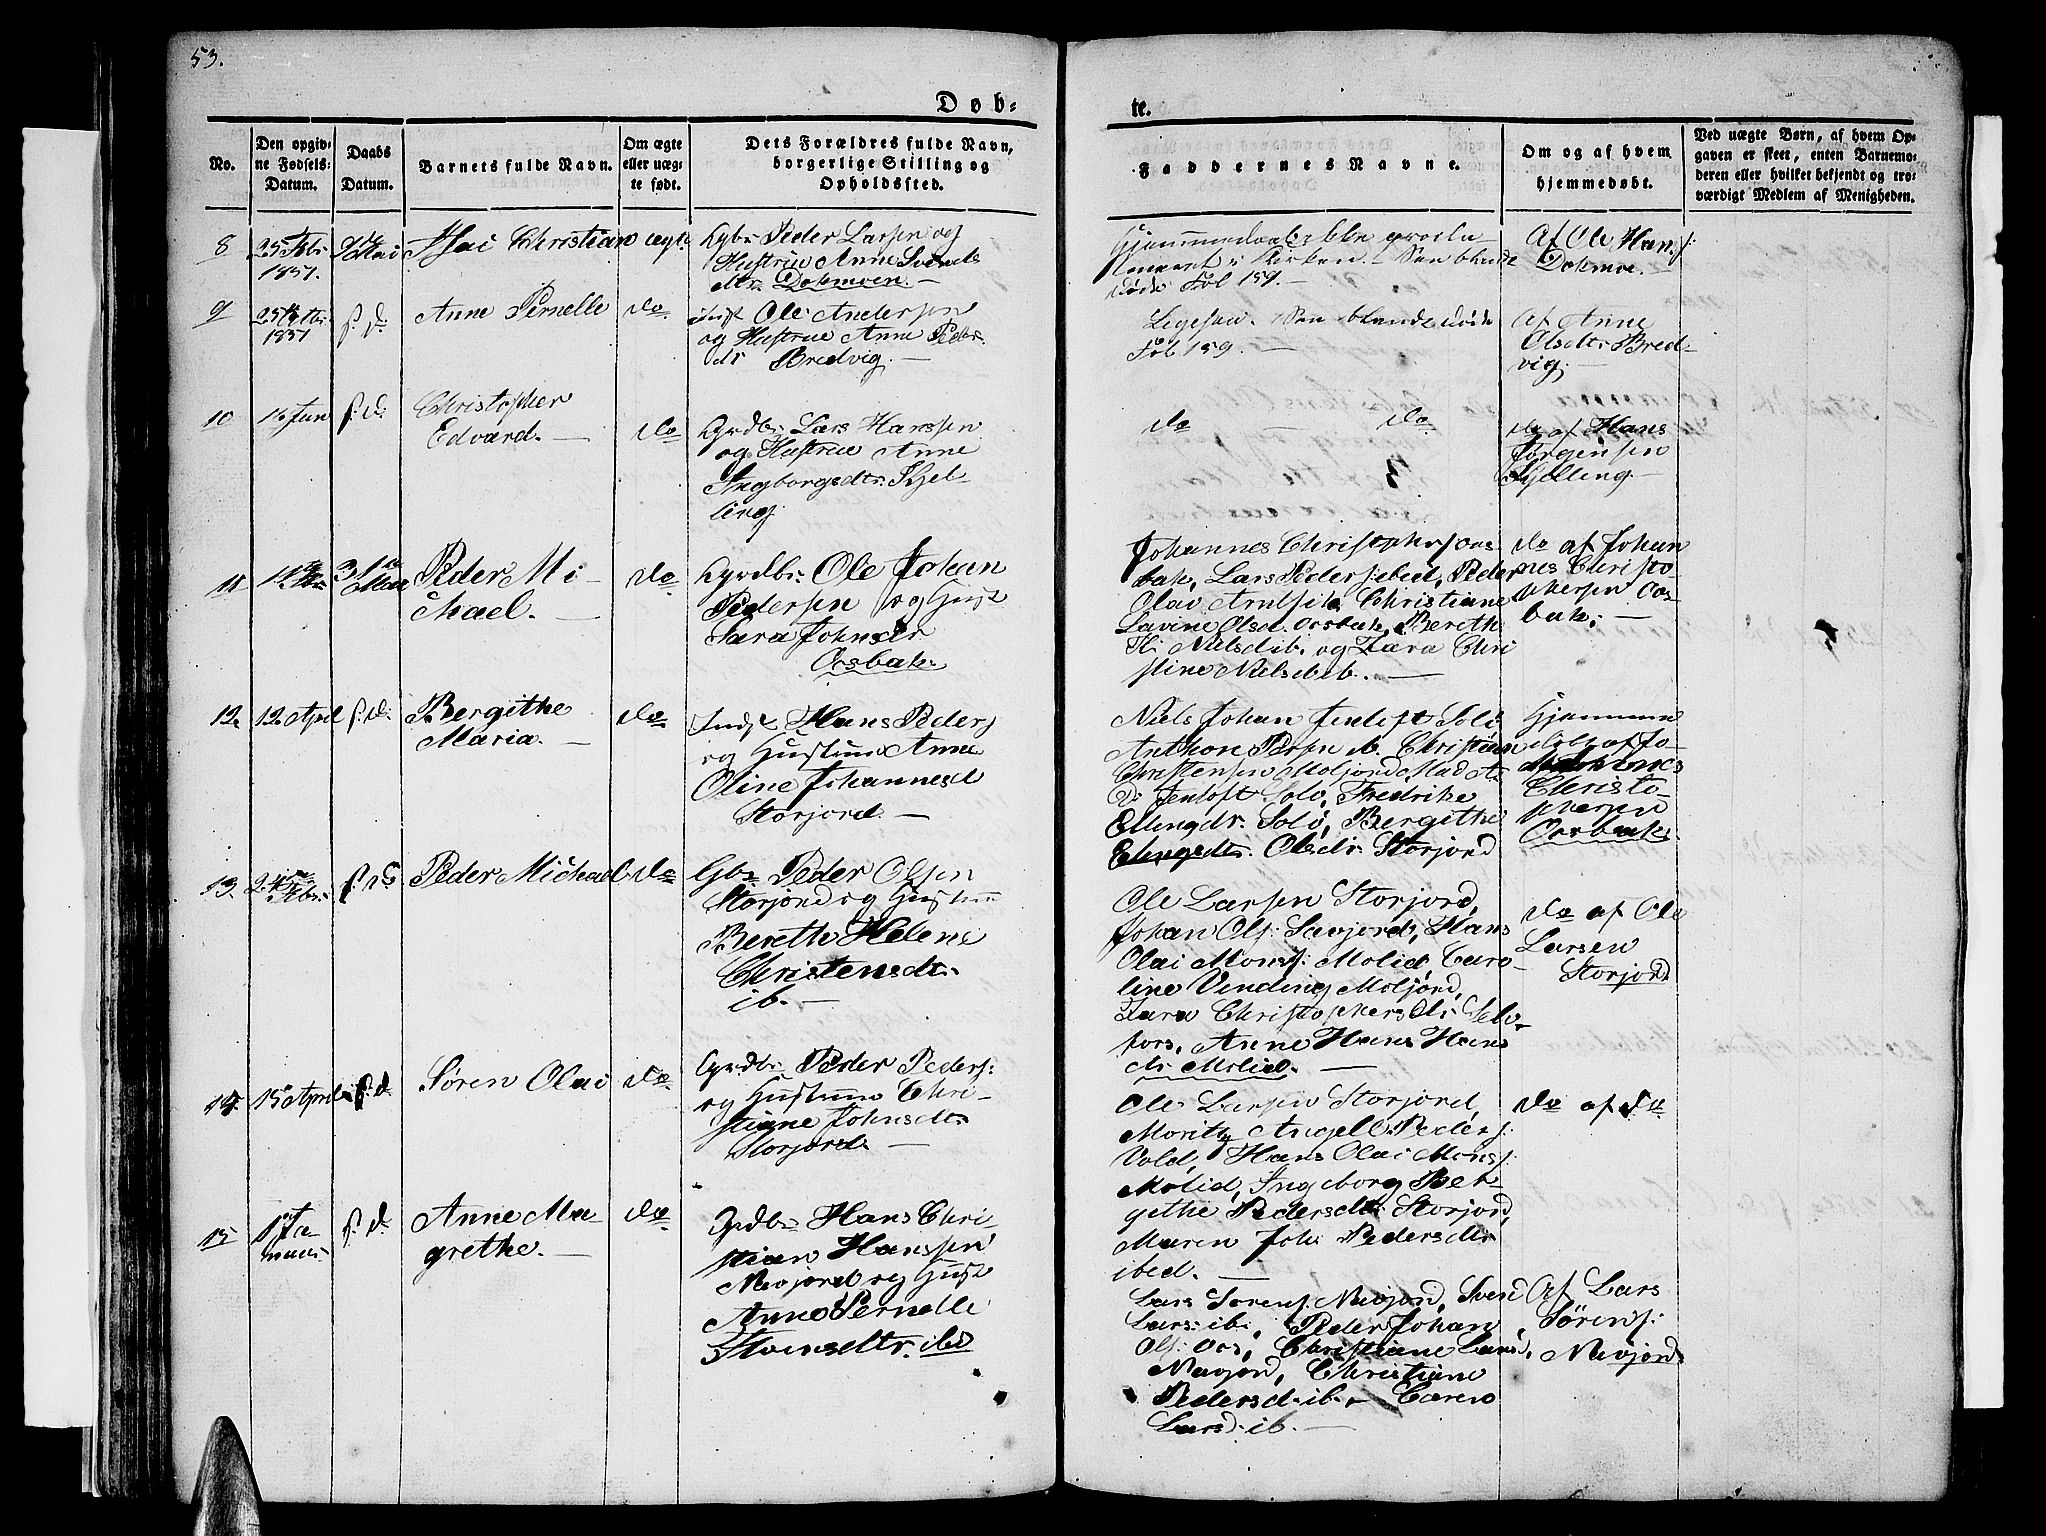 53.
Døb=
te.
No.
Den opgiv-
ne Fødsels-
Datum.
Daabs
Datum.
Barnets fulde Navn.
Om ægte
eller uæg-
te født.
Dets Forældres fulde Navn,
borgerlige Stilling og
Opholdssted.
Faddernes Navne.
Om og af hvem
hjemmedøbt.
Ved uægte Børn, af hvem Op-
gaven er skeet, enten Barnemo-
deren eller hvilket bekjendt og tro-
værdigt Medlem af Menigheden.
8
25 Febr
1837.
Mai
Christian
ægt.
Peder Larsen og
Hustrue Anne Svends
dtr. Dokmoen. —
Kirken. —
døde Fol 159. —
Af Ole Hans:
Dokmoe.
9
1837
f. d.
Anne Pernelle
do
Inds Ole Andersen
og Hustrue Anne Peders
dr Bredvig. —
Ligesaa.
Fol 159. —
af Anne
Olsdtr Bred-
vig.
10
14 Jun
f. d.
Christopher
Edvard. —
do
Grdbr Lars Hanssen
og Hustrue Anne
Ingborgsdtr. Kjel-
ling
do do
do af Hans
Jørgensen
Kjelling. —
11
31te
Mai
Peder Mi-
chael. —
do
Grdbr: Ole Johan
Pedersen og Hust
Sara Johnsdr
Oosbak.
Johannes Christophersen Oos
bak, Lars Peders: ibed, Peder
Olai Christiane
Lavine Olsd. Oosbak, Bereth
Nielsd ib. og Zara Chri
stine Nielsd ib. —
do af Johan
nes Christo-
phersen Oos-
bak. —
12
12 April
f. d.
Bergithe
Maria. —
do
Inds Hans Peders
og Hustrue Anne
Oline Johannesd
Storjord. —
Niels Johan Jentoft Solø
Anthon ib. Christian
Christensen Moljord
Jentoft Solø, Fredrike
Ellingdr. Solø, Bergithe
Olsdr. Storjord
Hjemme
døbt af Jo-
hannes
Christo-
phersen
Oosbak.
13.
Febr.
f. d.
Peder Michael
do
Gbr Peder Olsen
Storjord og Hustrue
Berethe Helene
Christensdtr.
ib. —
Ole Larsen Storjord,
Johan Ols: Hans
Olai Mons: Molid, Caro-
line Vinding Moljord,
Zara Christophersdtr Selv-
fors, Anne Hans Hans
dr. Molid. —
do af Ole
Larsen
Storjord
14.
15 April
f. d.
Søren Olai
do
Grdbr. Peder Peders:
og Hustrue Chri-
stiane Johnsdtr
Storjord —
Ole Larsen Storjord,
Moritz Angell Peders:
Vold, Hans Olai Mons:
Molid, Ingeborg Ber-
gethe Pedersdtr Storjord,
Maren Joh: Pedersdr
ibed. —
do af do
15
1 Ja-
nuar
f. d.
Anne Ma-
grethe. —
do
Grdbr Hans Chri-
stian Hanssen
Nevjord og Hust
Anne Pernelle
ibd
Lars Sørens: Nevjord, Svend
Lars: ib., Peder Johan
Ols: Oos, Christiane Larsd.
Nevjord, Christiane
Pedersd. ib. — Caren
Larsd. ib. —
Af Lars
Sørens:
Nevjord